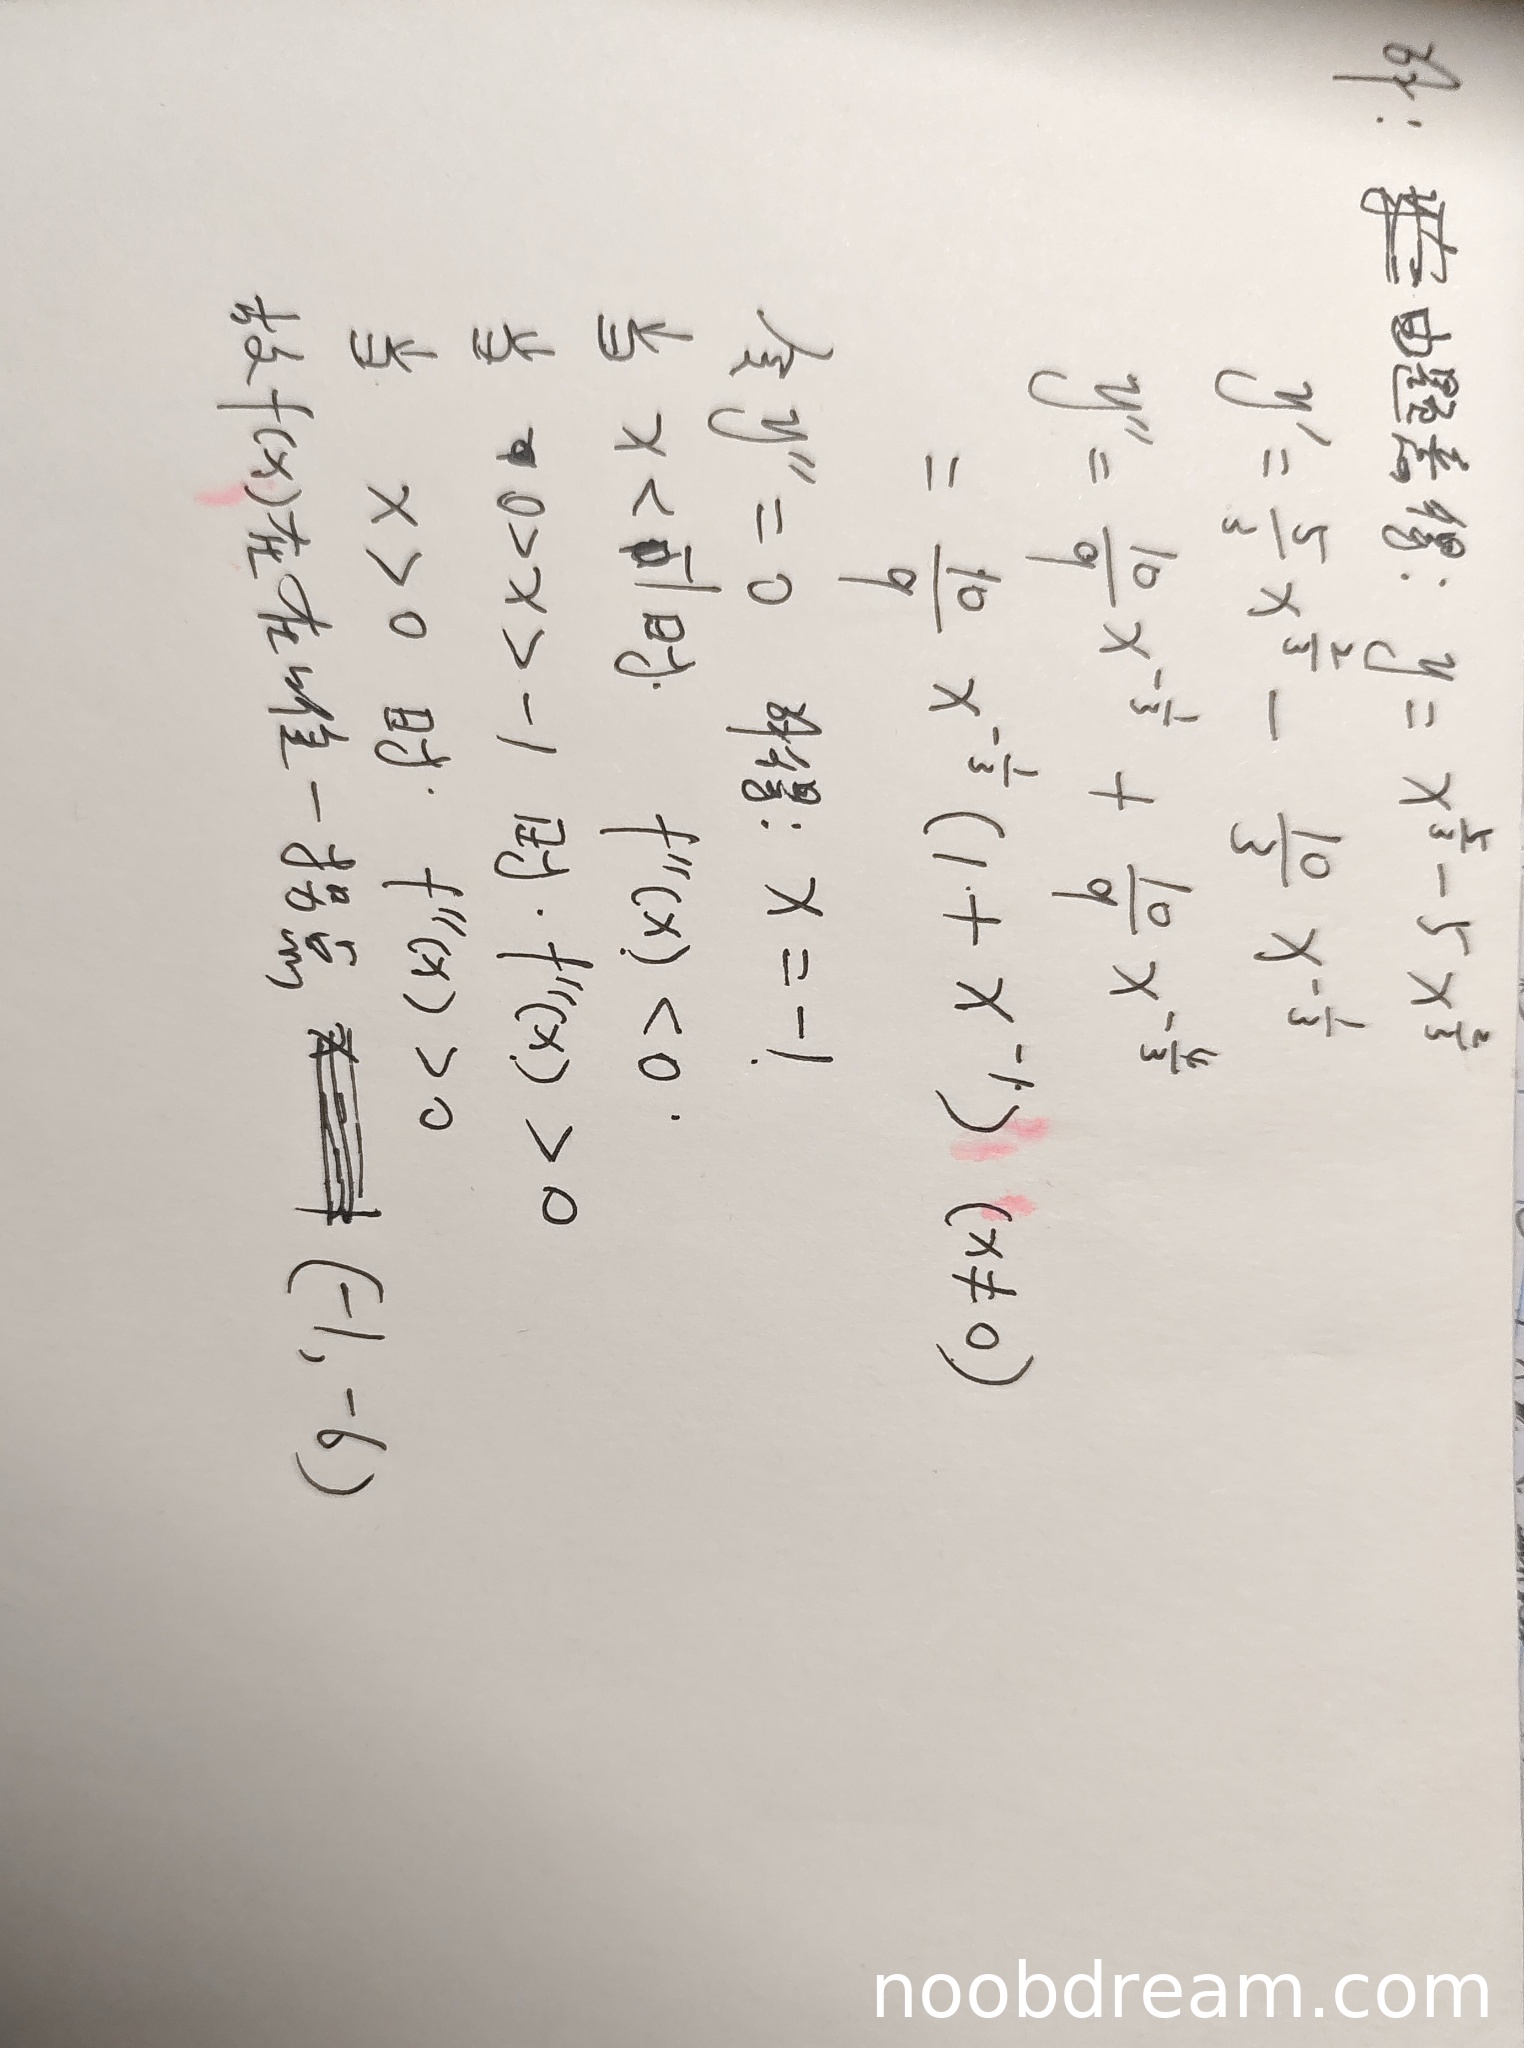 解: 由题意得: y = x^{5/3} - 5x^{2/3}
y' = 5/3 x^{2/3} - 10/3 x^{-1/3}
y'' = 10/9 x^{-1/3} + 10/9 x^{-4/3}
= 10/9 x^{-1/3} (1 + x^{-1}) (x≠0)
令 y'' = 0 解得: x = -1
当 x < -1 时. f''(x) < 0.
当 0 > x > -1 时. f''(x) > 0
当 x > 0 时. f''(x) > 0
故 f(x) 在存在唯一拐点 (-1, -6)
noobdream.com